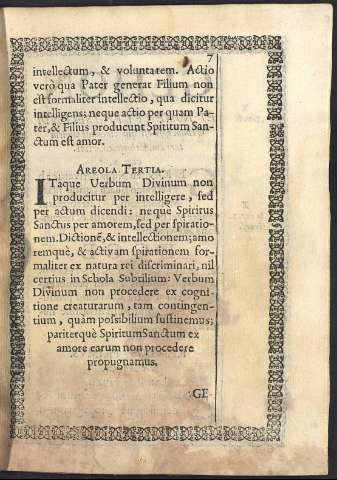 7
intellectum, & voluntatem. Actio
verò qua Pater generat Filium non
est formaliter intellectio, qua dicitur
intelligens; neque actio per quam Pa-
ter, & Filius producunt Spititum San-
ctum est amor.
AREOLA TERTIA.
ITaque Uerbum Divinum non
producitur per intelligere, sed
per actum dicendi: neque Spiritus
Sanctus per amorem, sed per spiratio-
nem. Dictionẽ, & intellectionem; amo
remquè, & activam spirationem for-
maliter ex natura rei discriminari, nil
certius in Schola Subtilium: Verbum
Divinum non procedere ex cogni
tione creaturarum, tam contingen-
tium, quàm possibilium sustinemus;
pariterquè Spiritum Sanctum ex
amore earum non procedere
propugnamus.
GE-